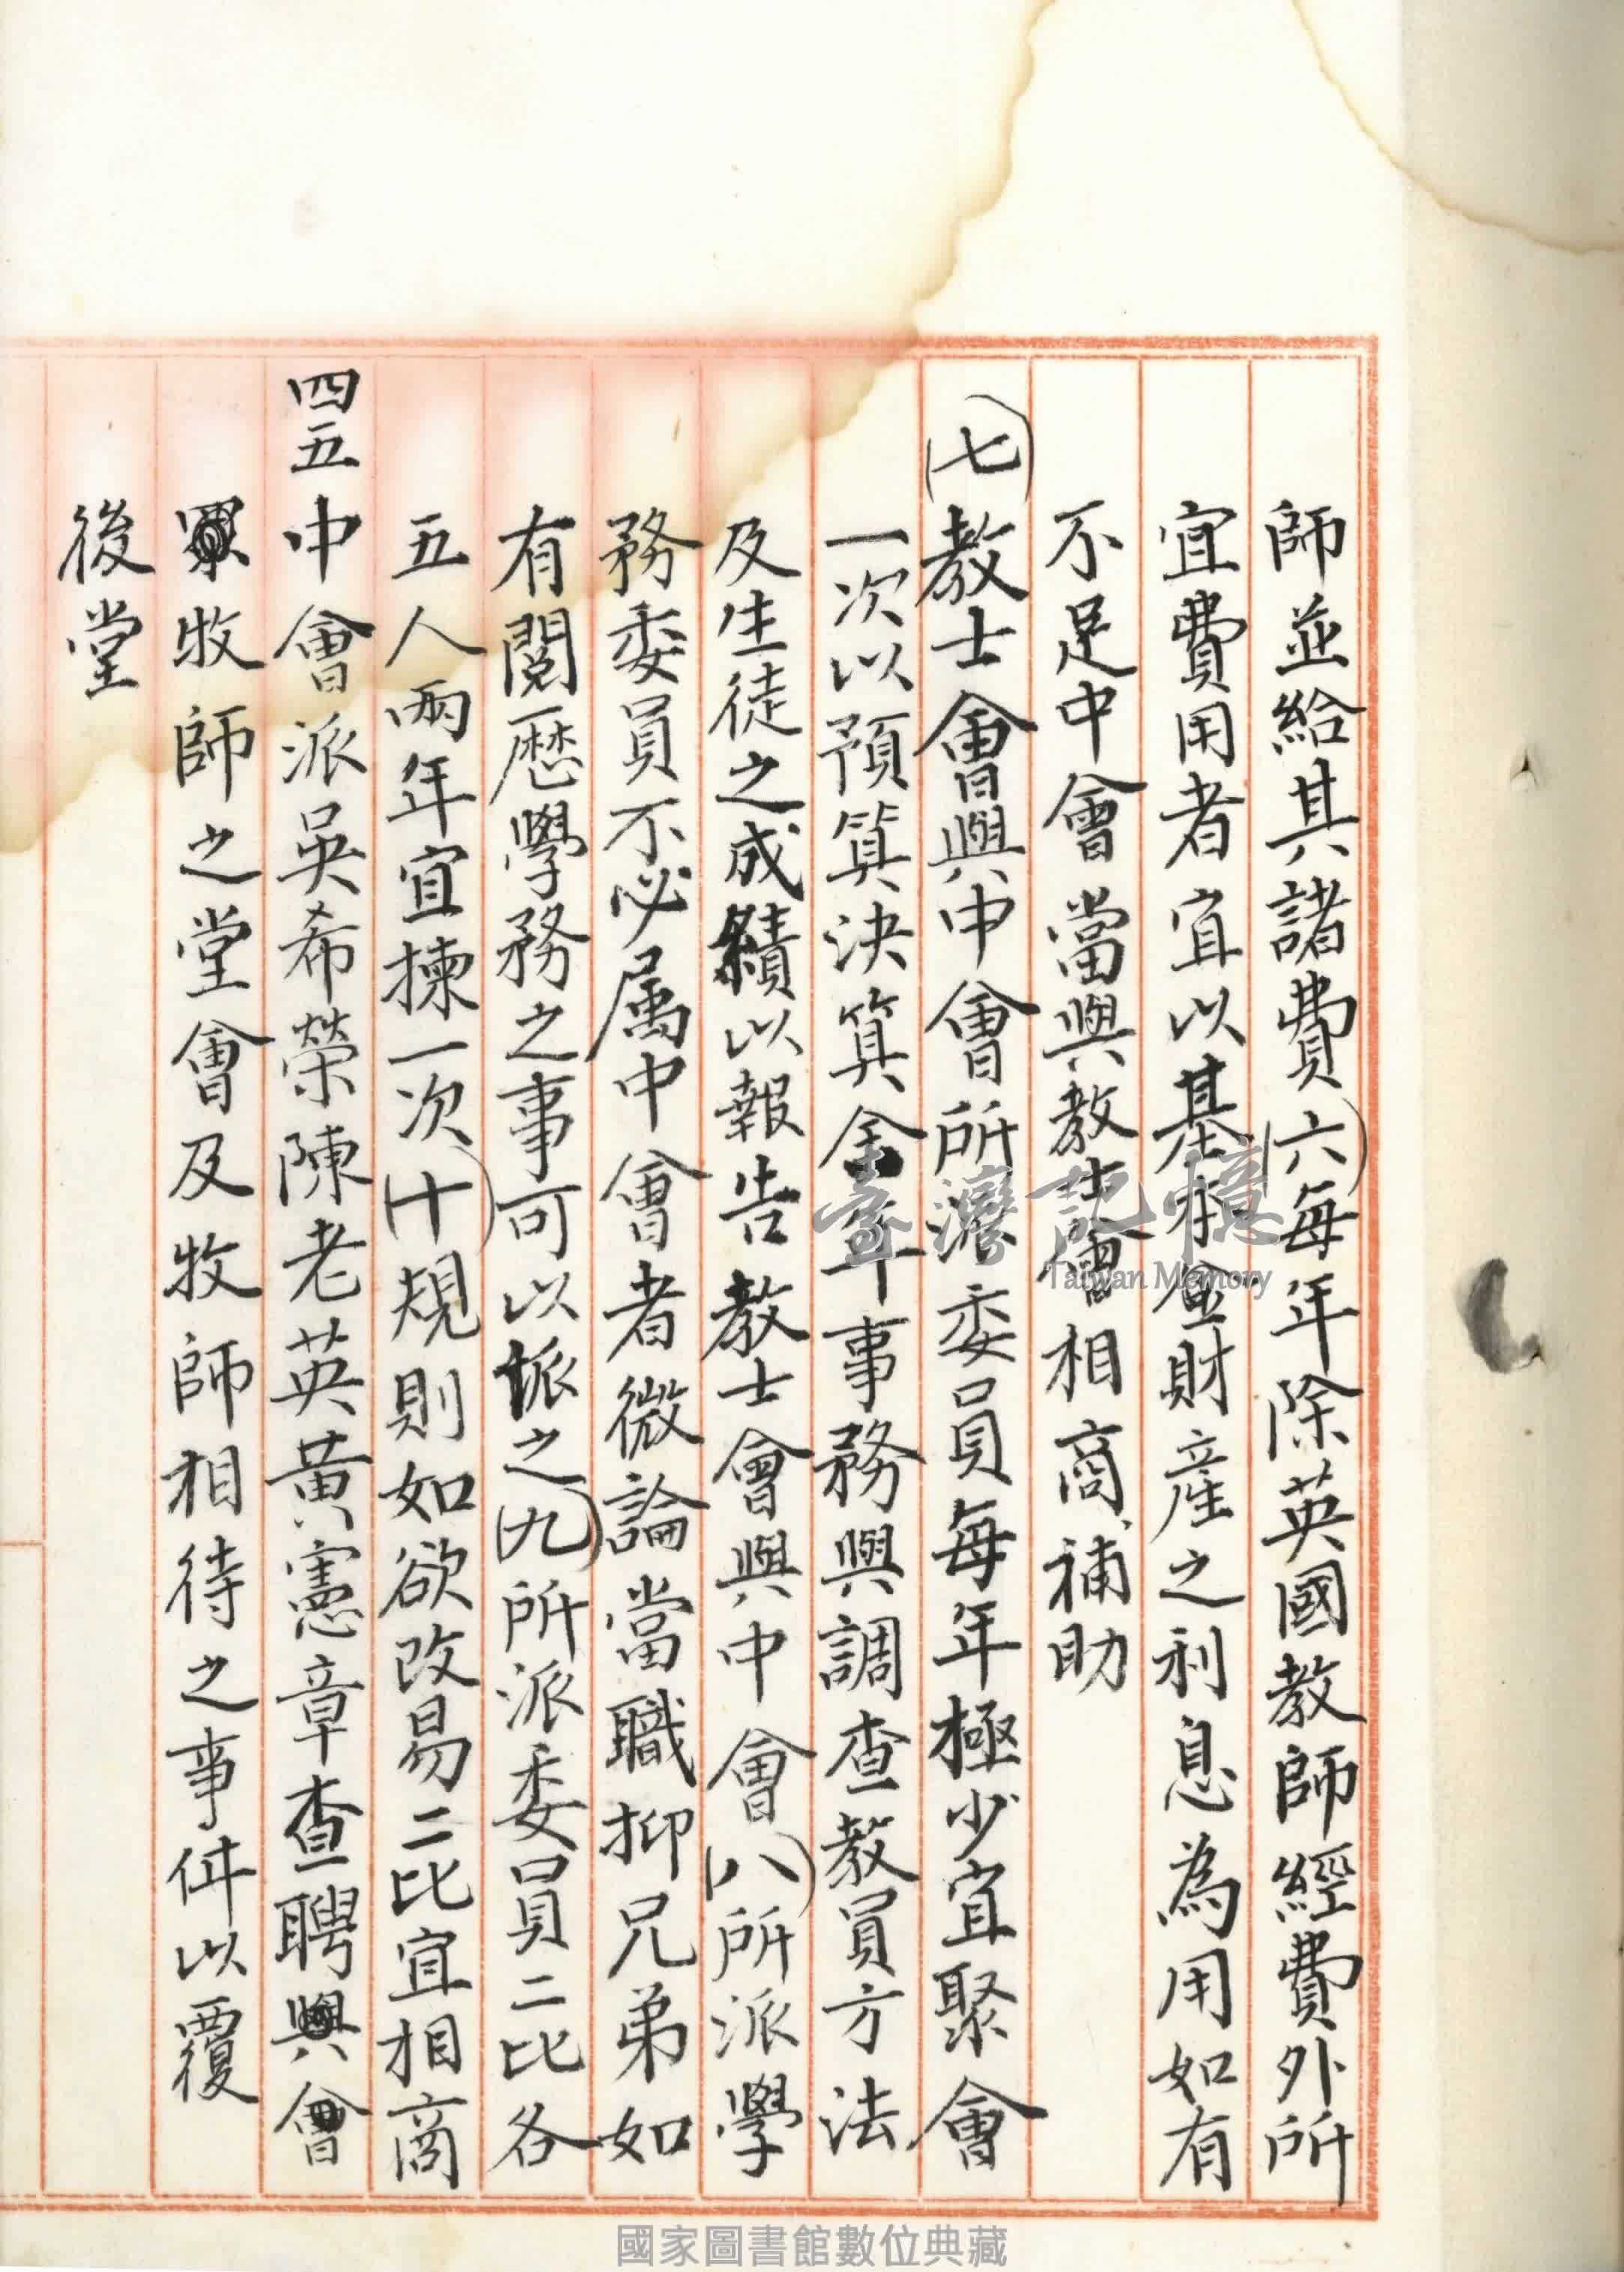 師並給其諸費(六)每年除英國教師經費外所
宜費用者宜以基本金財產之利息為用如有
不足中會當與教士會相商補助
(七)教士會與中會所派委員每年極少宜聚會
一次以預算決算全年事務與調查教員方法
及生徒之成績以報告教士會與中會(八)所派學
務委員不必属中會者微論當職抑兄弟如
有閱歷學務之事可以派之(九)所派委員二比各
五人兩年宜揀一次(十)規則如欲改易二比宜相商
四五中會派吳希榮陳老英黃憲章查聘與會
牧師之堂會及牧師相待之事件以覆
後堂
臺灣記憶
Taiwan Memory
國家圖書館數位典藏